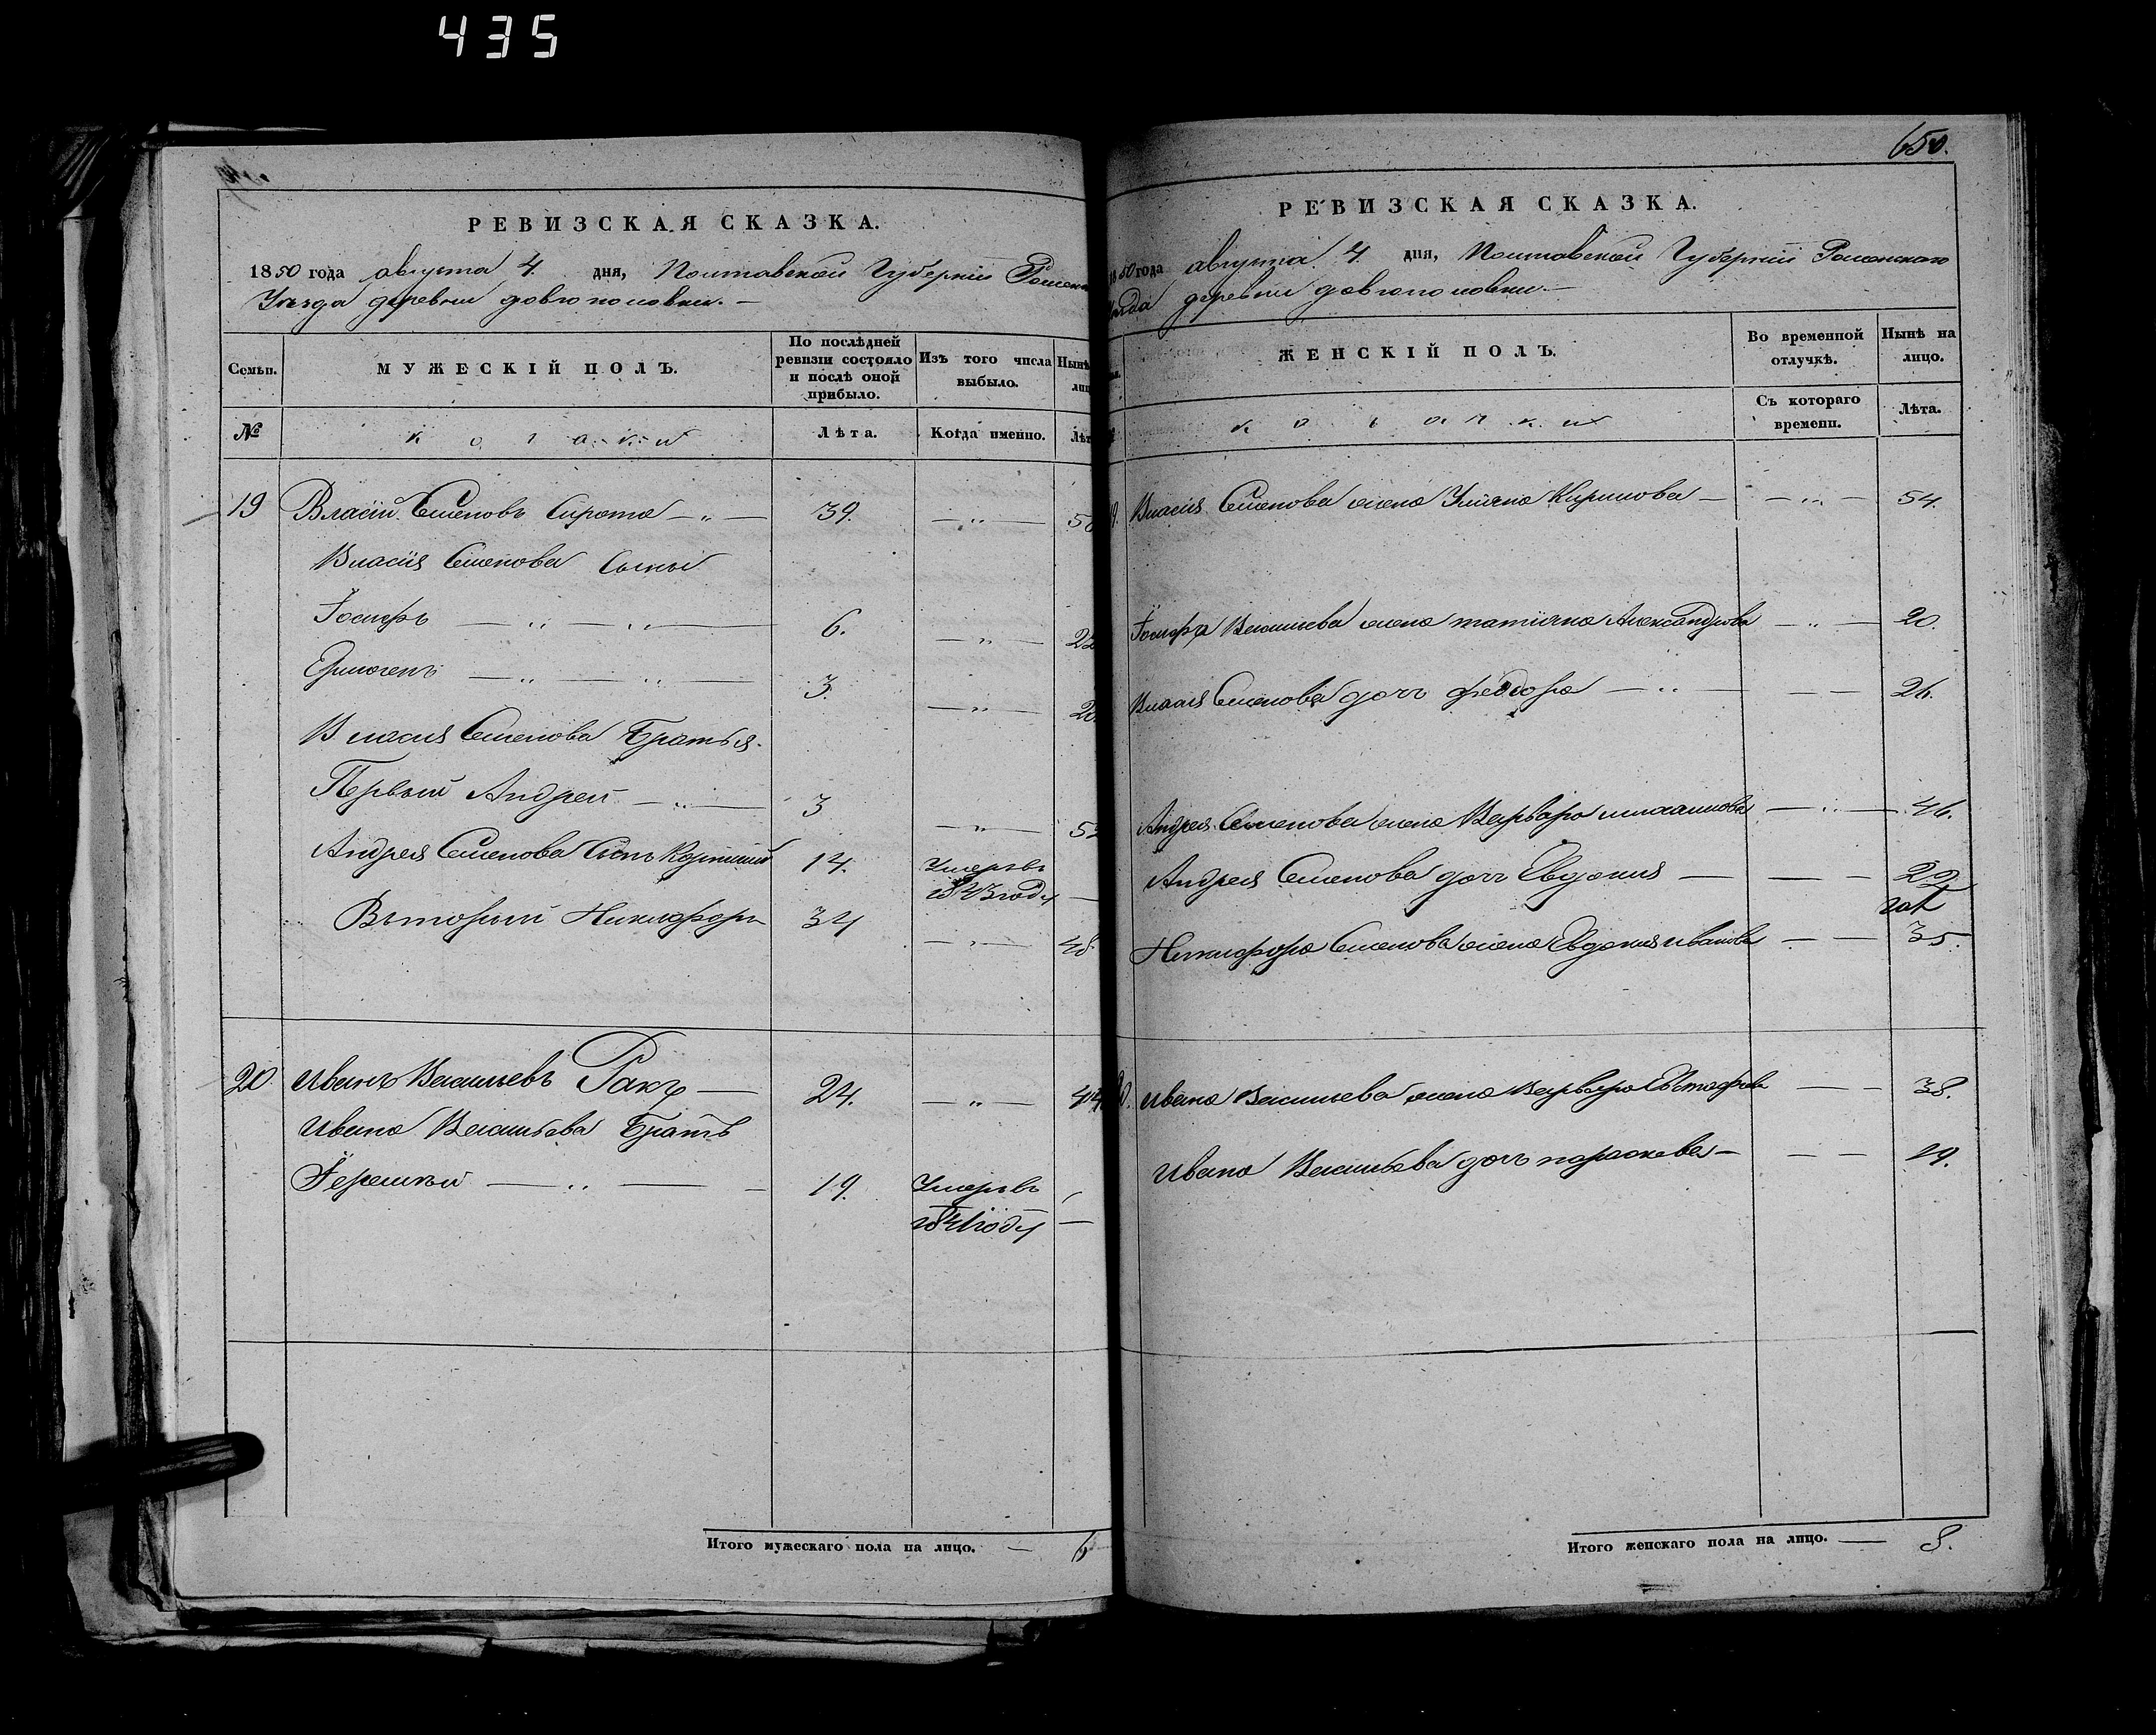 435
650.
РЕВИЗСКАЯ СКАЗКА.
1850 года августа 4. дня, Полтавской Губерніи Роменс
Уѣзда деревни довгополовки.—
Семьи.
МУЖЕСКІЙ ПОЛЪ.
По послѣдней ревизіи состояло и послѣ оной прибыло.
Изъ того числа выбыло.
Нынѣ
№
козаки
Лѣта.
Когда именно.
Лѣт
19 Власій Семеновъ Сирота 39. 50
Власія Семенова Сыны
Іосифъ 6. 22
3.
Власия Семенова Братья.
Первый Андрей 3 5
Андрея Семенова Сынъ 14. Умеръ въ
1843 году —
Вторый Никифоръ 34 48.
20. Иванъ Васильевъ Ракъ — 24. 4
Ивана Васильева Братъ
19. Умеръ въ
году —
Итого мужескаго пола на лицо. — 6
РЕВИЗСКАЯ СКАЗКА.
1850 года августа 4 дня, Полтавской Губерніи Роменскаго
Уѣзда деревни довгополовки.—
ЖЕНСКІЙ ПОЛЪ.
Во временной отлучкѣ.
Нынѣ на лицо.
козачки
Съ котораго времени.
Лѣта.
Власия Семенова жена Улияна Кирилова — 54.
Іосифа Власиева жена татіяна Александрова 20.
Власия Семенова дочь феодора 26.
Андрея Семенова жена Варвара михаилова 46.
Андрея Семенова дочь Евдокия 22
Никифора Семенова жена Евдокия иванова 35.
Ивана Васильева жена Варвара Евстафиева 38.
Ивана Васильева дочь параскева — 19.
Итого женскаго пола на лицо. — 8.